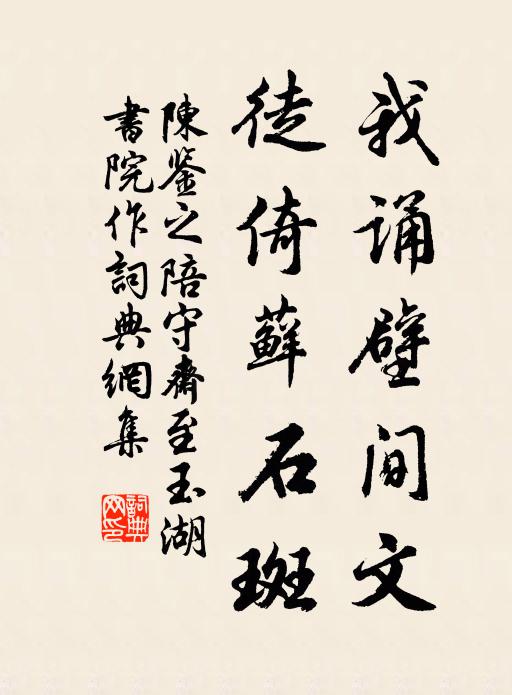 我诵壁间文
徒倚蘚石斑
陳鉴之陪守齋至玉湖
書院作詞典網集
詞典
网印